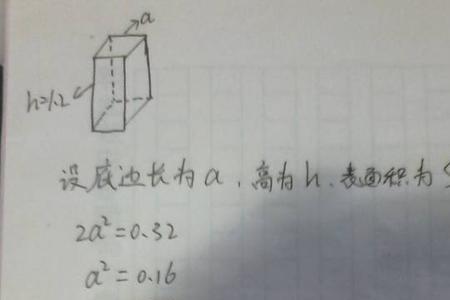 a
h=1.2
设底边长为a，高为h，表面积为S
2a²=0.32
a²=0.16